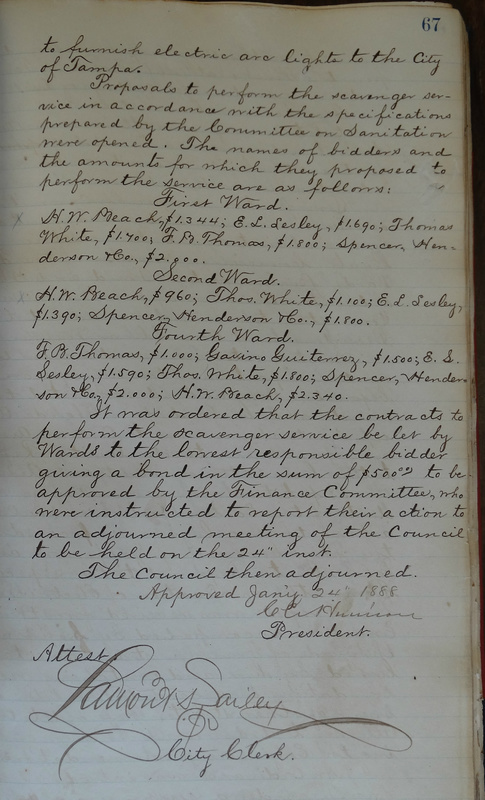 67
to furnish electric arc lights to the City
of Tampa.
Proposals to perform the scavenger ser-
vice in accordance with the specifications
prepared by the Committee on Sanitation
were opened. The names of bidders and
the amounts for which they proposed to
perform the service are as follows:
First Ward.
x H.W. Beach, $1.344; E.L. Lesley, $1.690; Thomas
White, $1.700; F.B. Thomas, $1.800; Spencer, Hen-
derson & Co., $2.000.
Second Ward.
H.W. Beach, $960; Thos. White, $1.100; E.L. Lesley,
$1.390; Spencer, Henderson & Co., $1.800.
Fourth Ward.
F.B. Thomas, $1.000; Gavino Guiterrez, $1.500; E.L.
Lesley, $1.590; Thos. White, $1.800; Spencer, Hender-
son & Co., $2.000; H.W. Beach, $2.340.
It was ordered that the contracts to
perform the scavenger service be let by
Wards to the lowest responsible bidder
giving a bond in the sum of $500.00 to be
approved by the Finance Committee, who
were instructed to report their action to
an adjourned meeting of the Council
to be held on the 24" inst.
The Council then adjourned.
Approved Jany. 24" 1888
President.
Attest,
City Clerk.